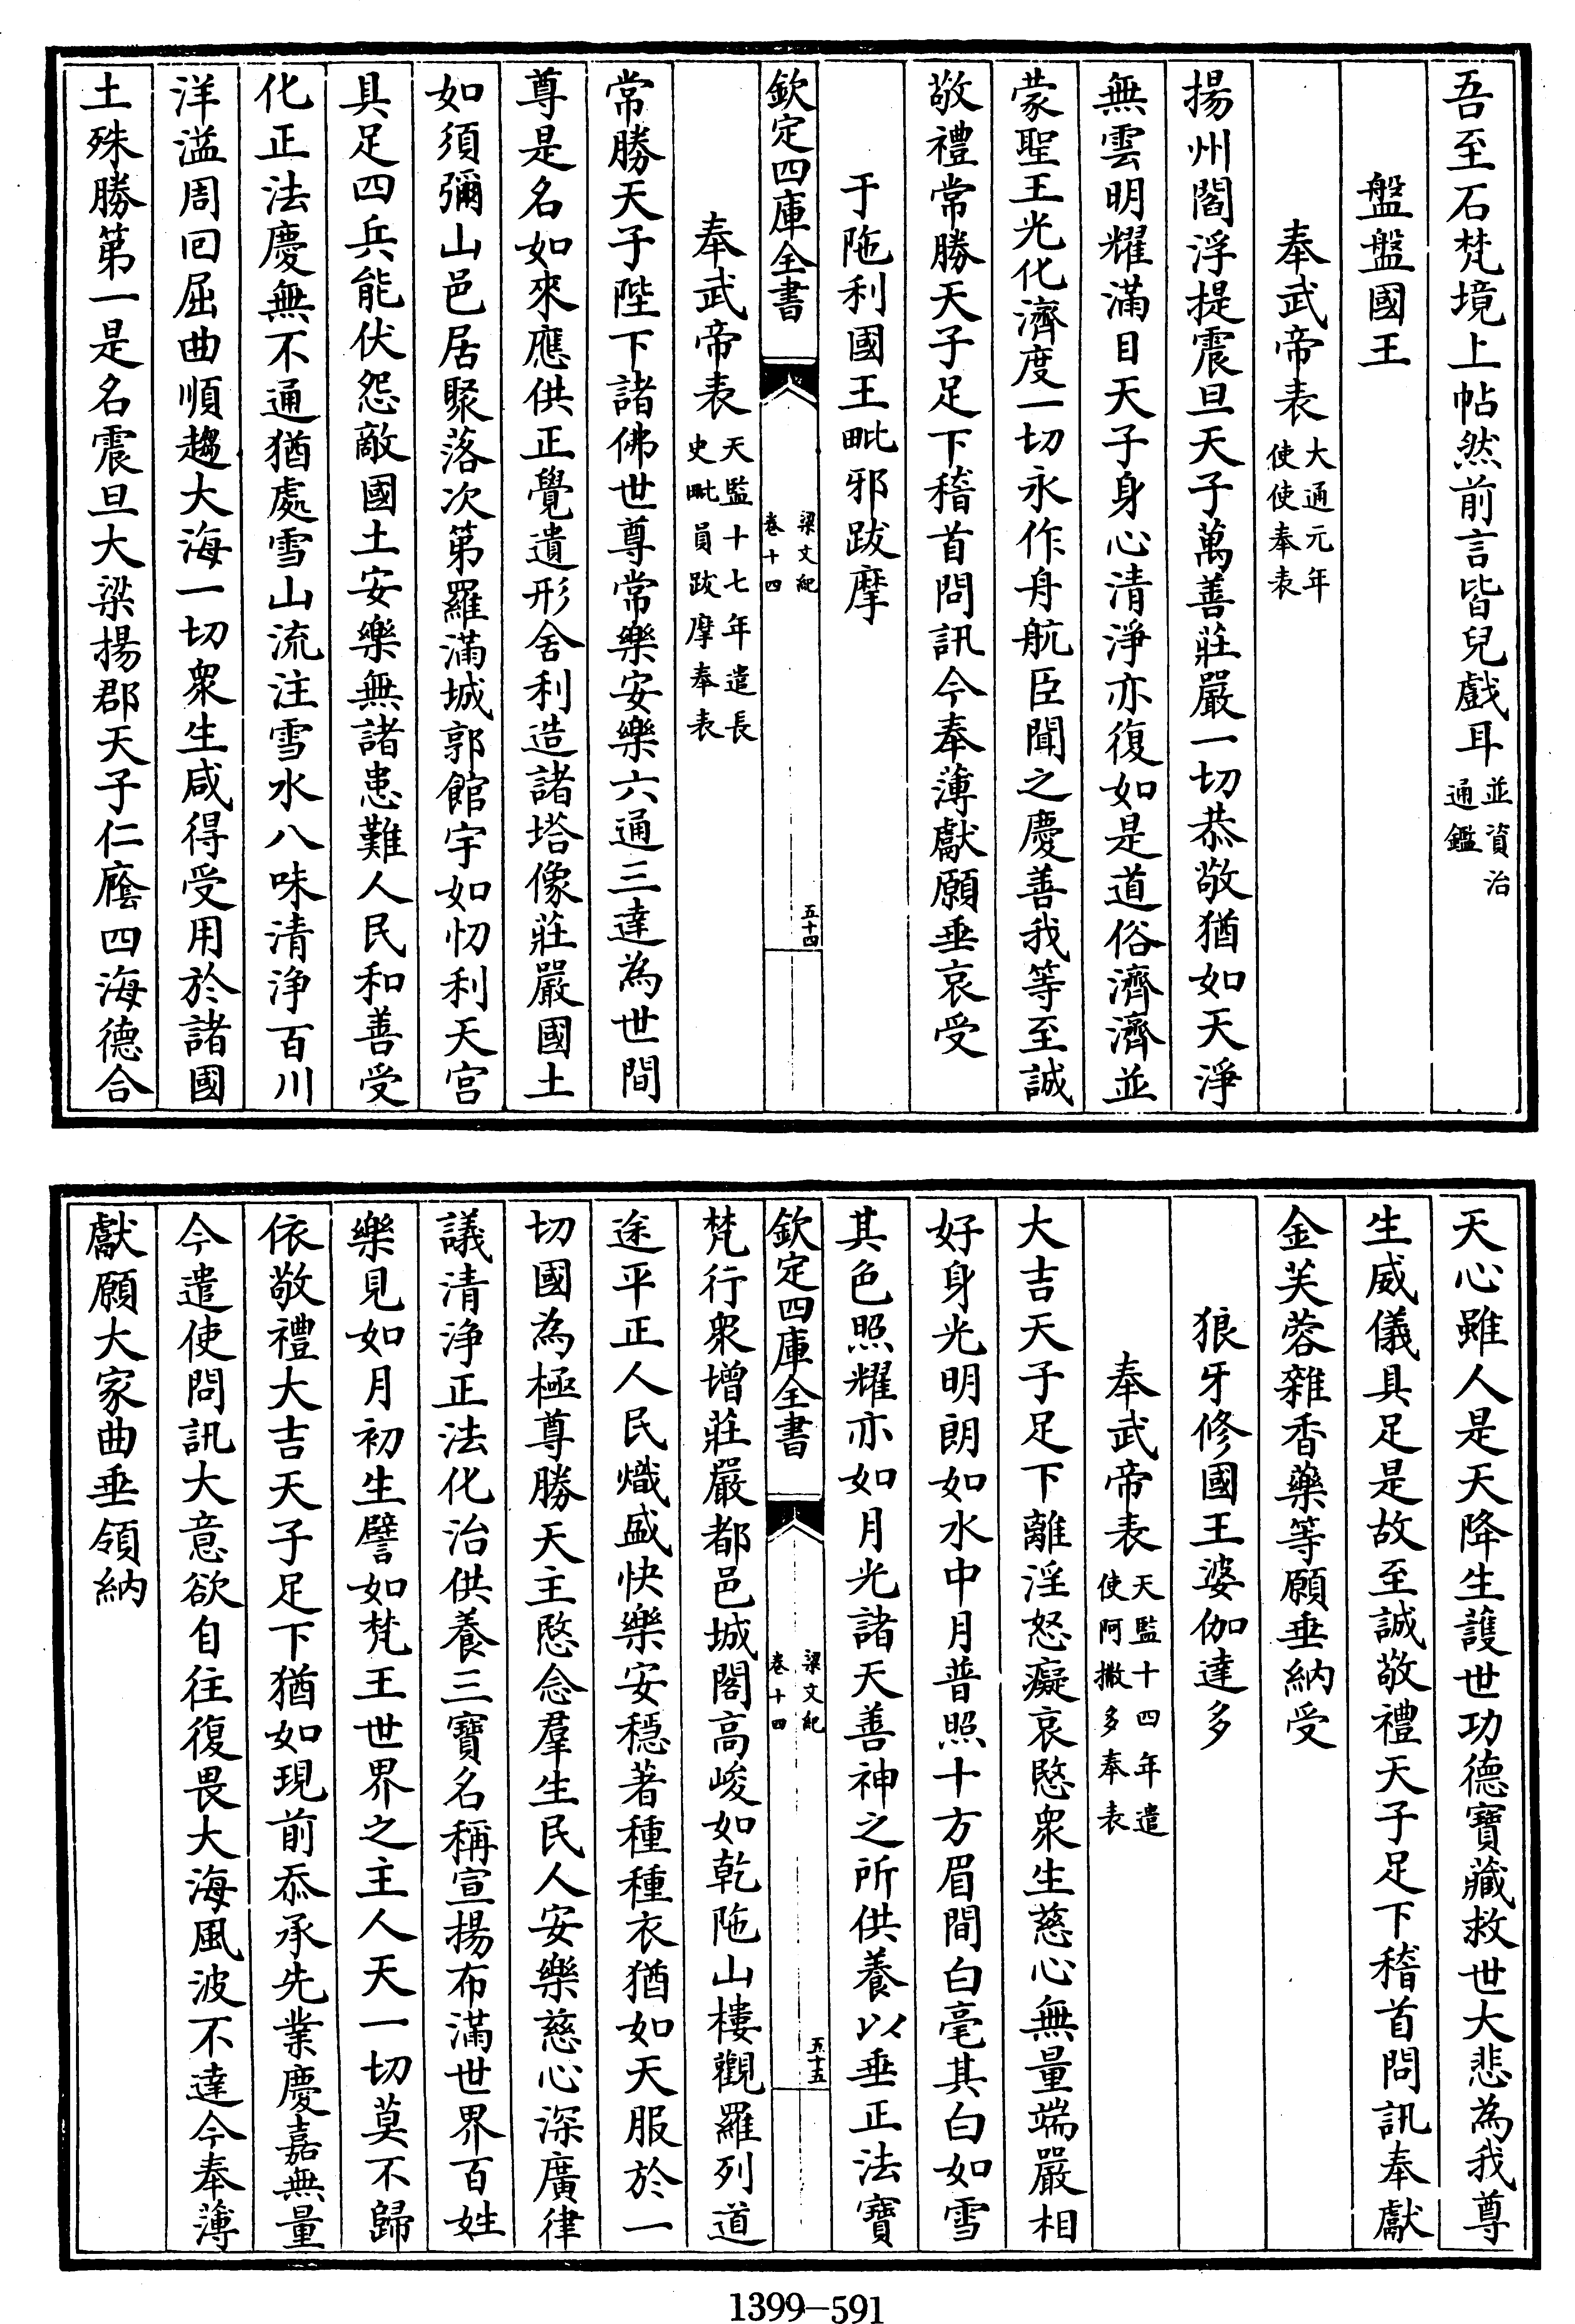 吾至石梵境上帖然前言皆兒戲耳並資治通鑑
盤盤國王
奉武帝表大通元年使使奉表
揚州閻浮提震旦天子萬善莊嚴一切恭敬猶如天淨
無雲明耀滿目天子身心清淨亦復如是道俗濟濟並
蒙聖王光化濟度一切永作舟航臣聞之慶善我等至誠
敬禮常勝天子足下稽首問訊今奉薄獻願垂哀受
于陁利國王毗邪跋摩
欽定四庫全書
梁文紀
卷十四
五十四
奉武帝表天監十七年遣長史毗員跋摩奉表
常勝天子陛下諸佛世尊常樂安樂六通三達為世間
尊是名如來應供正覺遺形舍利造諸塔像莊嚴國土
如須彌山邑居聚落次第羅滿城郭館宇如忉利天宮
具足四兵能伏怨敵國土安樂無諸患難人民和善受
化正法慶無不通猶處雪山流注雪水八味清淨百川
洋溢周回屈曲順趨大海一切衆生咸得受用於諸國
土殊勝第一是名震旦大梁揚郡天子仁廕四海德合
天心雖人是天降生護世功德寶藏救世大悲為我尊
生威儀具足是故至誠敬禮天子足下稽首問訊奉獻
金芙蓉雜香藥等願垂納受
狼牙修國王婆伽達多
奉武帝表天監十四年遣使阿撒多奉表
大吉天子足下離淫怒癡哀愍衆生慈心無量端嚴相
好身光明朗如水中月普照十方眉間白毫其白如雪
其色照耀亦如月光諸天善神之所供養以垂正法寶
欽定四庫全書
梁文紀
卷十四
五十五
梵行衆增莊嚴都邑城閣高峻如乾陁山樓觀羅列道
途平正人民熾盛快樂安穩著種種衣猶如天服於一
切國為極尊勝天主愍念羣生民人安樂慈心深廣律
議清淨正法化治供養三寶名稱宣揚布滿世界百姓
樂見如月初生譬如梵王世界之主人天一切莫不歸
依敬禮大吉天子足下猶如現前忝承先業慶嘉無量
今遣使問訊大意欲自往復畏大海風波不達今奉薄
獻願大家曲垂領納
1399—591